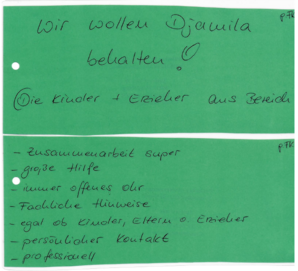 Wir wollen Djamila
behalten!
Die Kinder + Erzieher aus Bereich
- Zusammenarbeit super
- große Hilfe
- immer offenes Ohr
- Fachliche Hinweise
- egal ob Kinder, Eltern o. Erzieher
- persönlicher Kontakt
- professionell